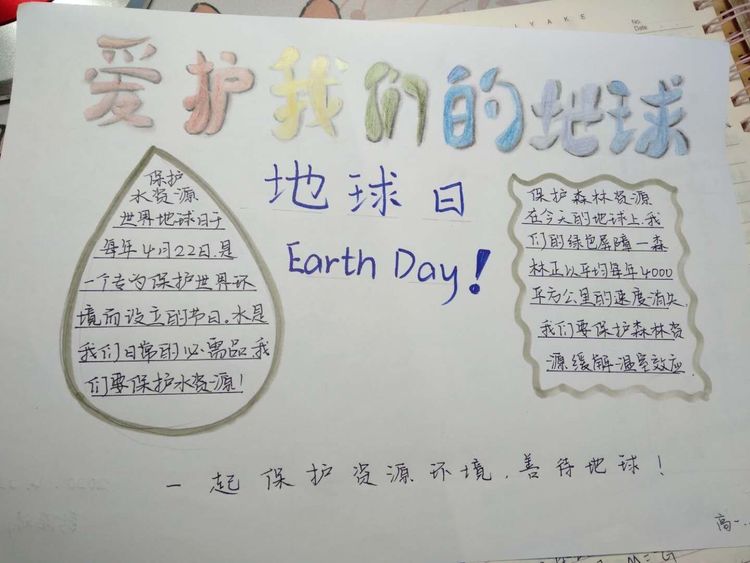 LYAKE
No.
Date
爱护我们的地球
地球日
Earth Day!
保护
水资源
世界地球日于
每年4月22日.是
一个专为保护世界环
境而设立的节日。水是
我们日常的必需品.我
们要保护水资源!
保护森林资源
在今天的地球上.我
们的绿色屏障一森
林正以平均每年4000
平方公里的速度消失.
我们要保护森林资
源缓解温室效应.
一起保护资源环境.善待地球!
高一